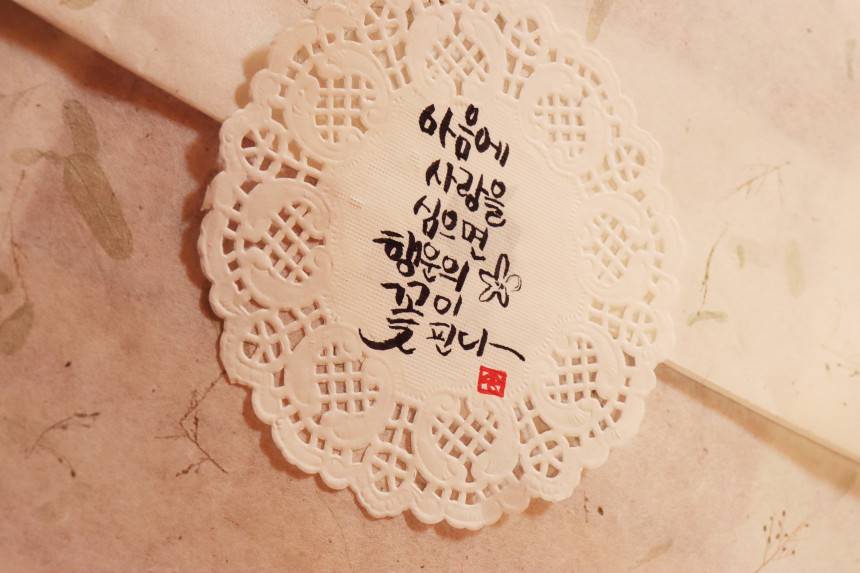 마음에
사랑을
심으면
행운의
꽃이
핀다